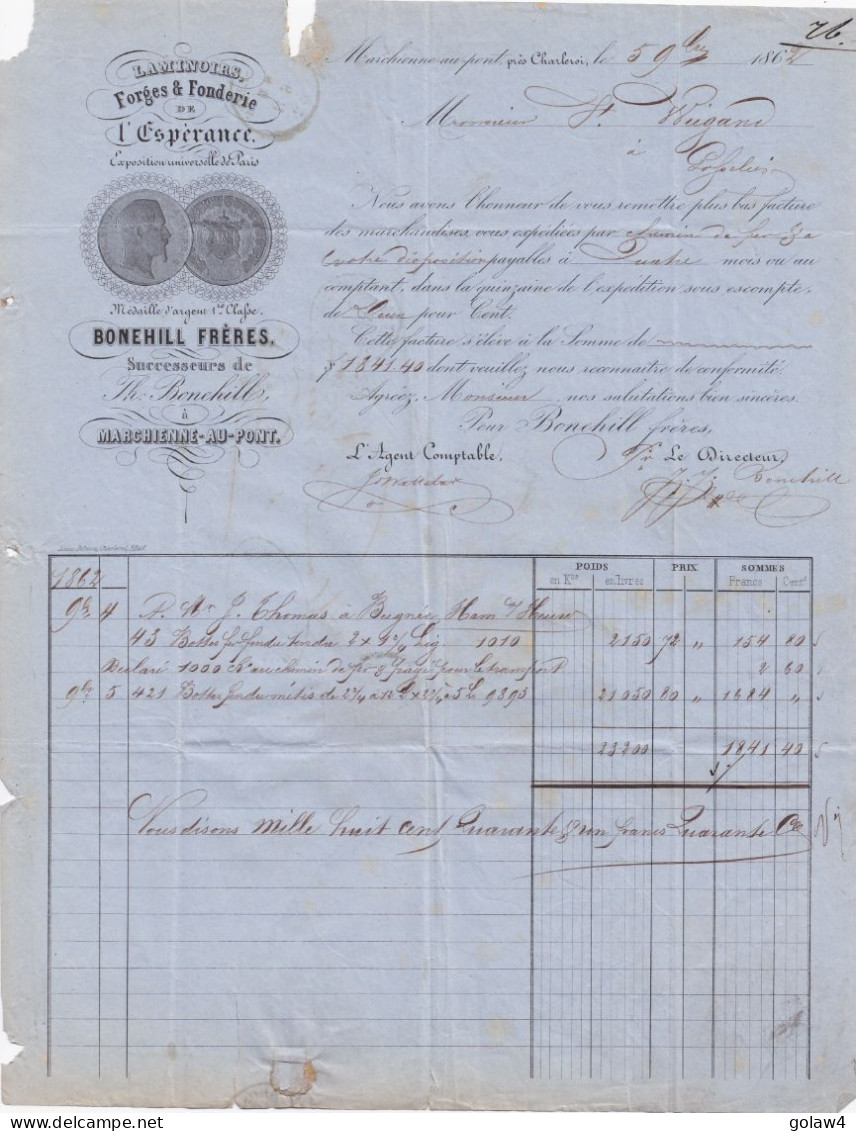 76.
LAMINOIRS,
Forges & Fonderie
DE
l'Espérance.
Exposition universelle de Paris
Médaille d'argent 1re Classe.
BONEHILL FRÈRES,
Successeurs de
Th. Bonehill,
à
MARCHIENNE-AU-PONT.
Marchienne-au-pont, près Charleroi, le 5 9bre 1862
Monsieur Wiégand
à
Gosselies
Nous avons l'honneur de vous remettre plus bas facture
des marchandises, vous expédiées par chemin de fer & a
votre disposition payables à Quatre mois ou au
comptant, dans la quinzaine de l'expédition sous escompte,
de deux pour Cent.
Cette facture s'élève à la Somme de
f 1841.40 dont veuillez nous reconnaitre de conformité.
Agréez, Monsieur nos salutations bien sincères.
Pour Bonehill frères,
L'Agent Comptable, Pr Le Directeur,
J. J. Bonehill
POIDS PRIX SOMMES
en Kos en livres Francs Cents
1862
9b 4 P. Mr J. Thomas à Beignée Ham s/ Heure
43 Bottes fer fendu tendre 2 x 4 Lig 1010 2150 72 " 154 80
Déclaré 1000 au chemin de fer & payé pour le transport 2 60
9b 5 421 Bottes fendu métis de 9395 21050 80 " 1684 "
23200 1841 40
Vous disons Mille huit cent Quarante & un francs Quarante Ces
golaw4